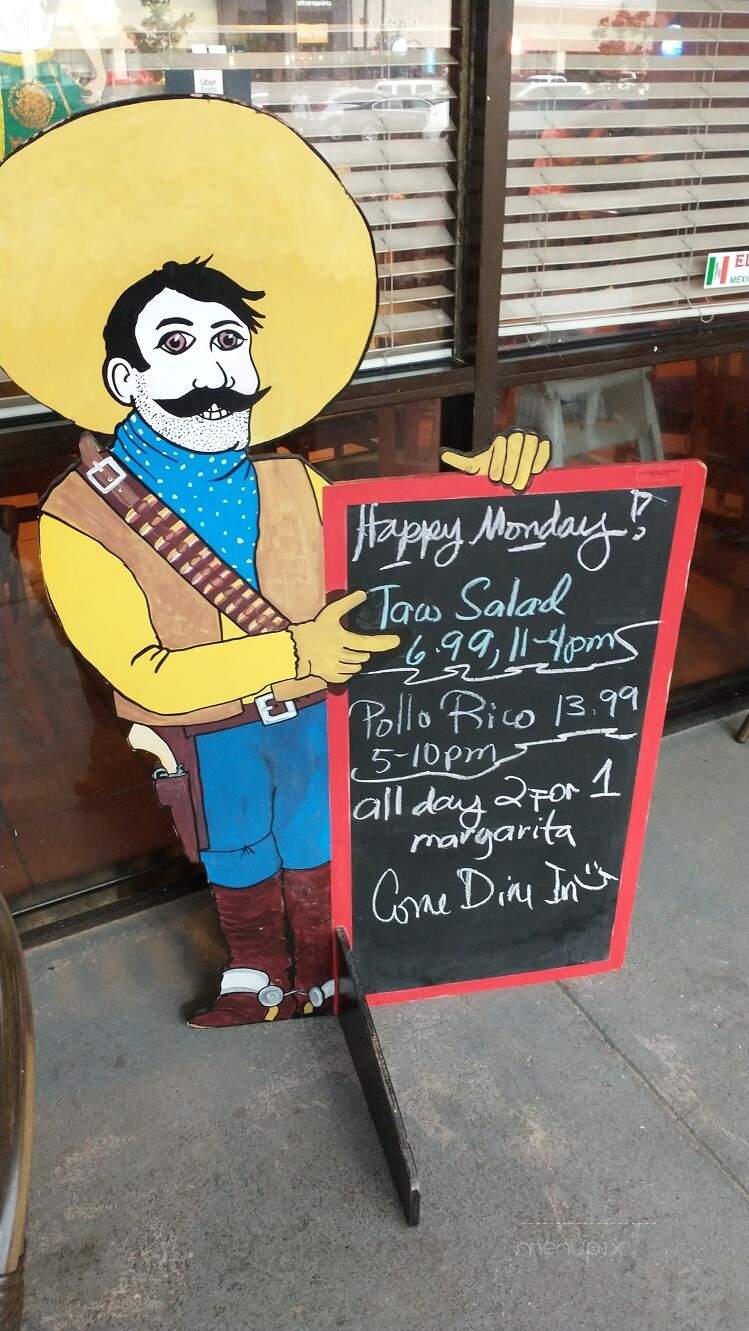 Uber
Eats
EL
MEXI
Happy Monday!
Taco Salad
6.99, 11-4pm
Pollo Rico 13.99
5-10pm
all day 2 FOR 1
margarita
Come Dine In
menupix